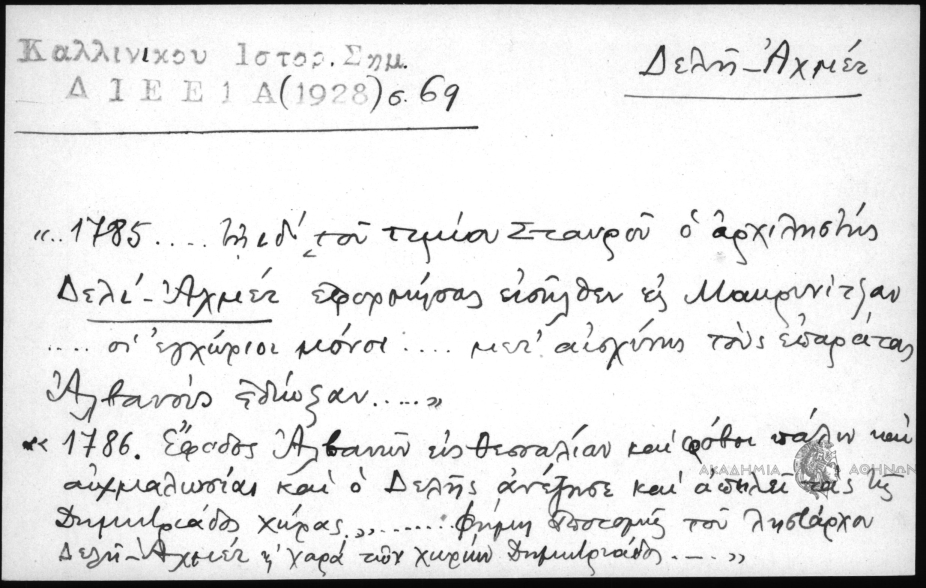 Καλλινίκου Ιστορ. Σημ.
Δελῆ-Ἀχμέτ
ΔΙΕΕ1Α(1928)σ.69
«..1785.... τοῦ τιμίου Σταυροῦ ὁ ἀρχιληστής
Δελί-Ἀχμέτ ἐφορμήσας εἰσῆλθεν εἰς Μακρυνίτζαν
.... οἱ ἐγχώριοι μόνοι .... μετ' αἰσχύνης τούς ἐπαράτας
Ἀλβανούς ἐδίωξαν.....»
«1786. Ἔφοδος Ἀλβανῶν εἰς Θεσσαλίαν καί φόβοι πάλιν καί
αἰχμαλωσίαι καί ὁ Δελῆς ἀνέζησε καί ἀπειλεῖ τάς τῆς
Δημητριάδος χώρας,, ....... φήμη τοῦ ληστάρχου
Δελῆ-Ἀχμέτ ἡ χαρά τῶν χωρίων Δημητριάδος .--..»
ΑΚΑΔΗΜΙΑ ΑΘΗΝΩΝ